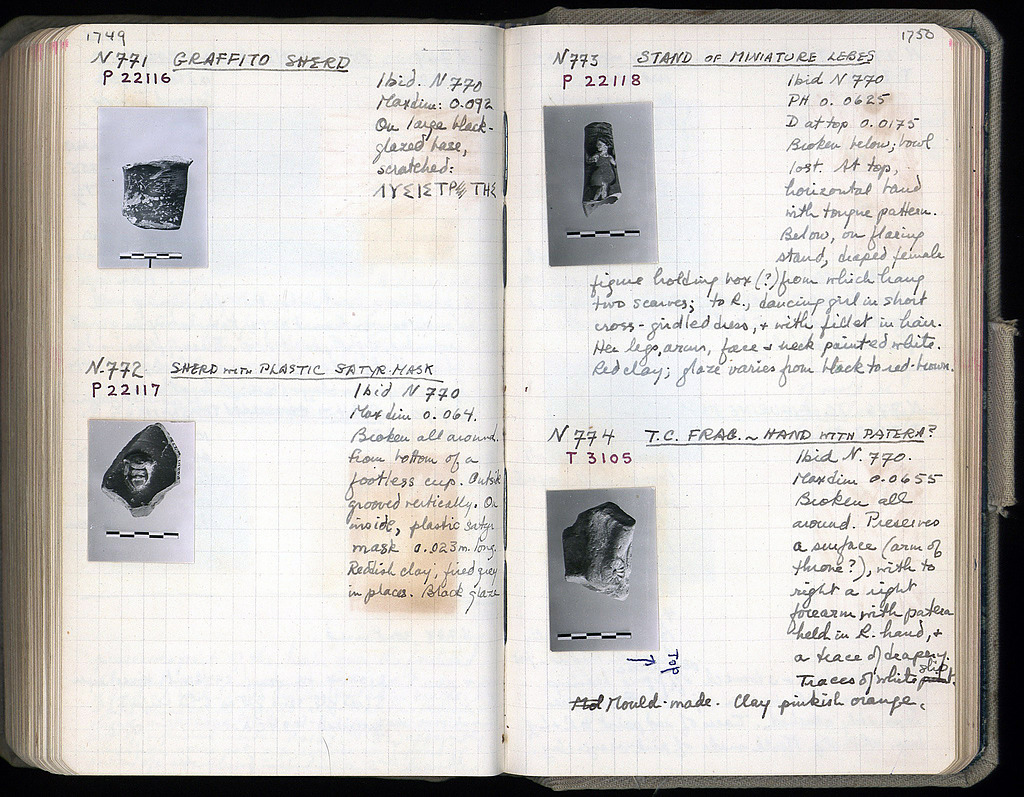 1749
N 771 GRAFFITO SHERD
P 22116
Ibid. N 770
Max dim: 0.092
On large black-
glazed base,
scratched:
N 772 SHERD WITH PLASTIC SATYR-MASK
P 22117
Ibid N 770
Max dim 0.064.
Broken all around.
From bottom of a
footless cup. Outside
grooved vertically. On
inside, plastic satyr
mask 0.023 m. long.
Reddish clay, fired grey
in places. Black glaze
1750
N 773 STAND OF MINIATURE LEBES
P 22118
Ibid N 770
PH 0.0625
D at top 0.0175
Broken below; bowl
lost. At top,
horizontal band
with tongue pattern.
Below, on flaring
stand, draped female
figure holding box (?) from which hang
two scarves; to R., dancing girl in short
cross-girdled dress, + with fillet in hair.
Her legs, arms, face + neck painted white.
Red clay; glaze varies from black to red-brown.
N 774 T.C. FRAG. ~ HAND WITH PATERA?
T 3105
Ibid N. 770.
Max dim 0.0655
Broken all
around. Preserves
a surface (arm of
throne?), with to
right a right
forearm with patera
held in R. hand, +
a trace of drapery.
Traces of white slip.
Mould-made. Clay pinkish orange.
TOP